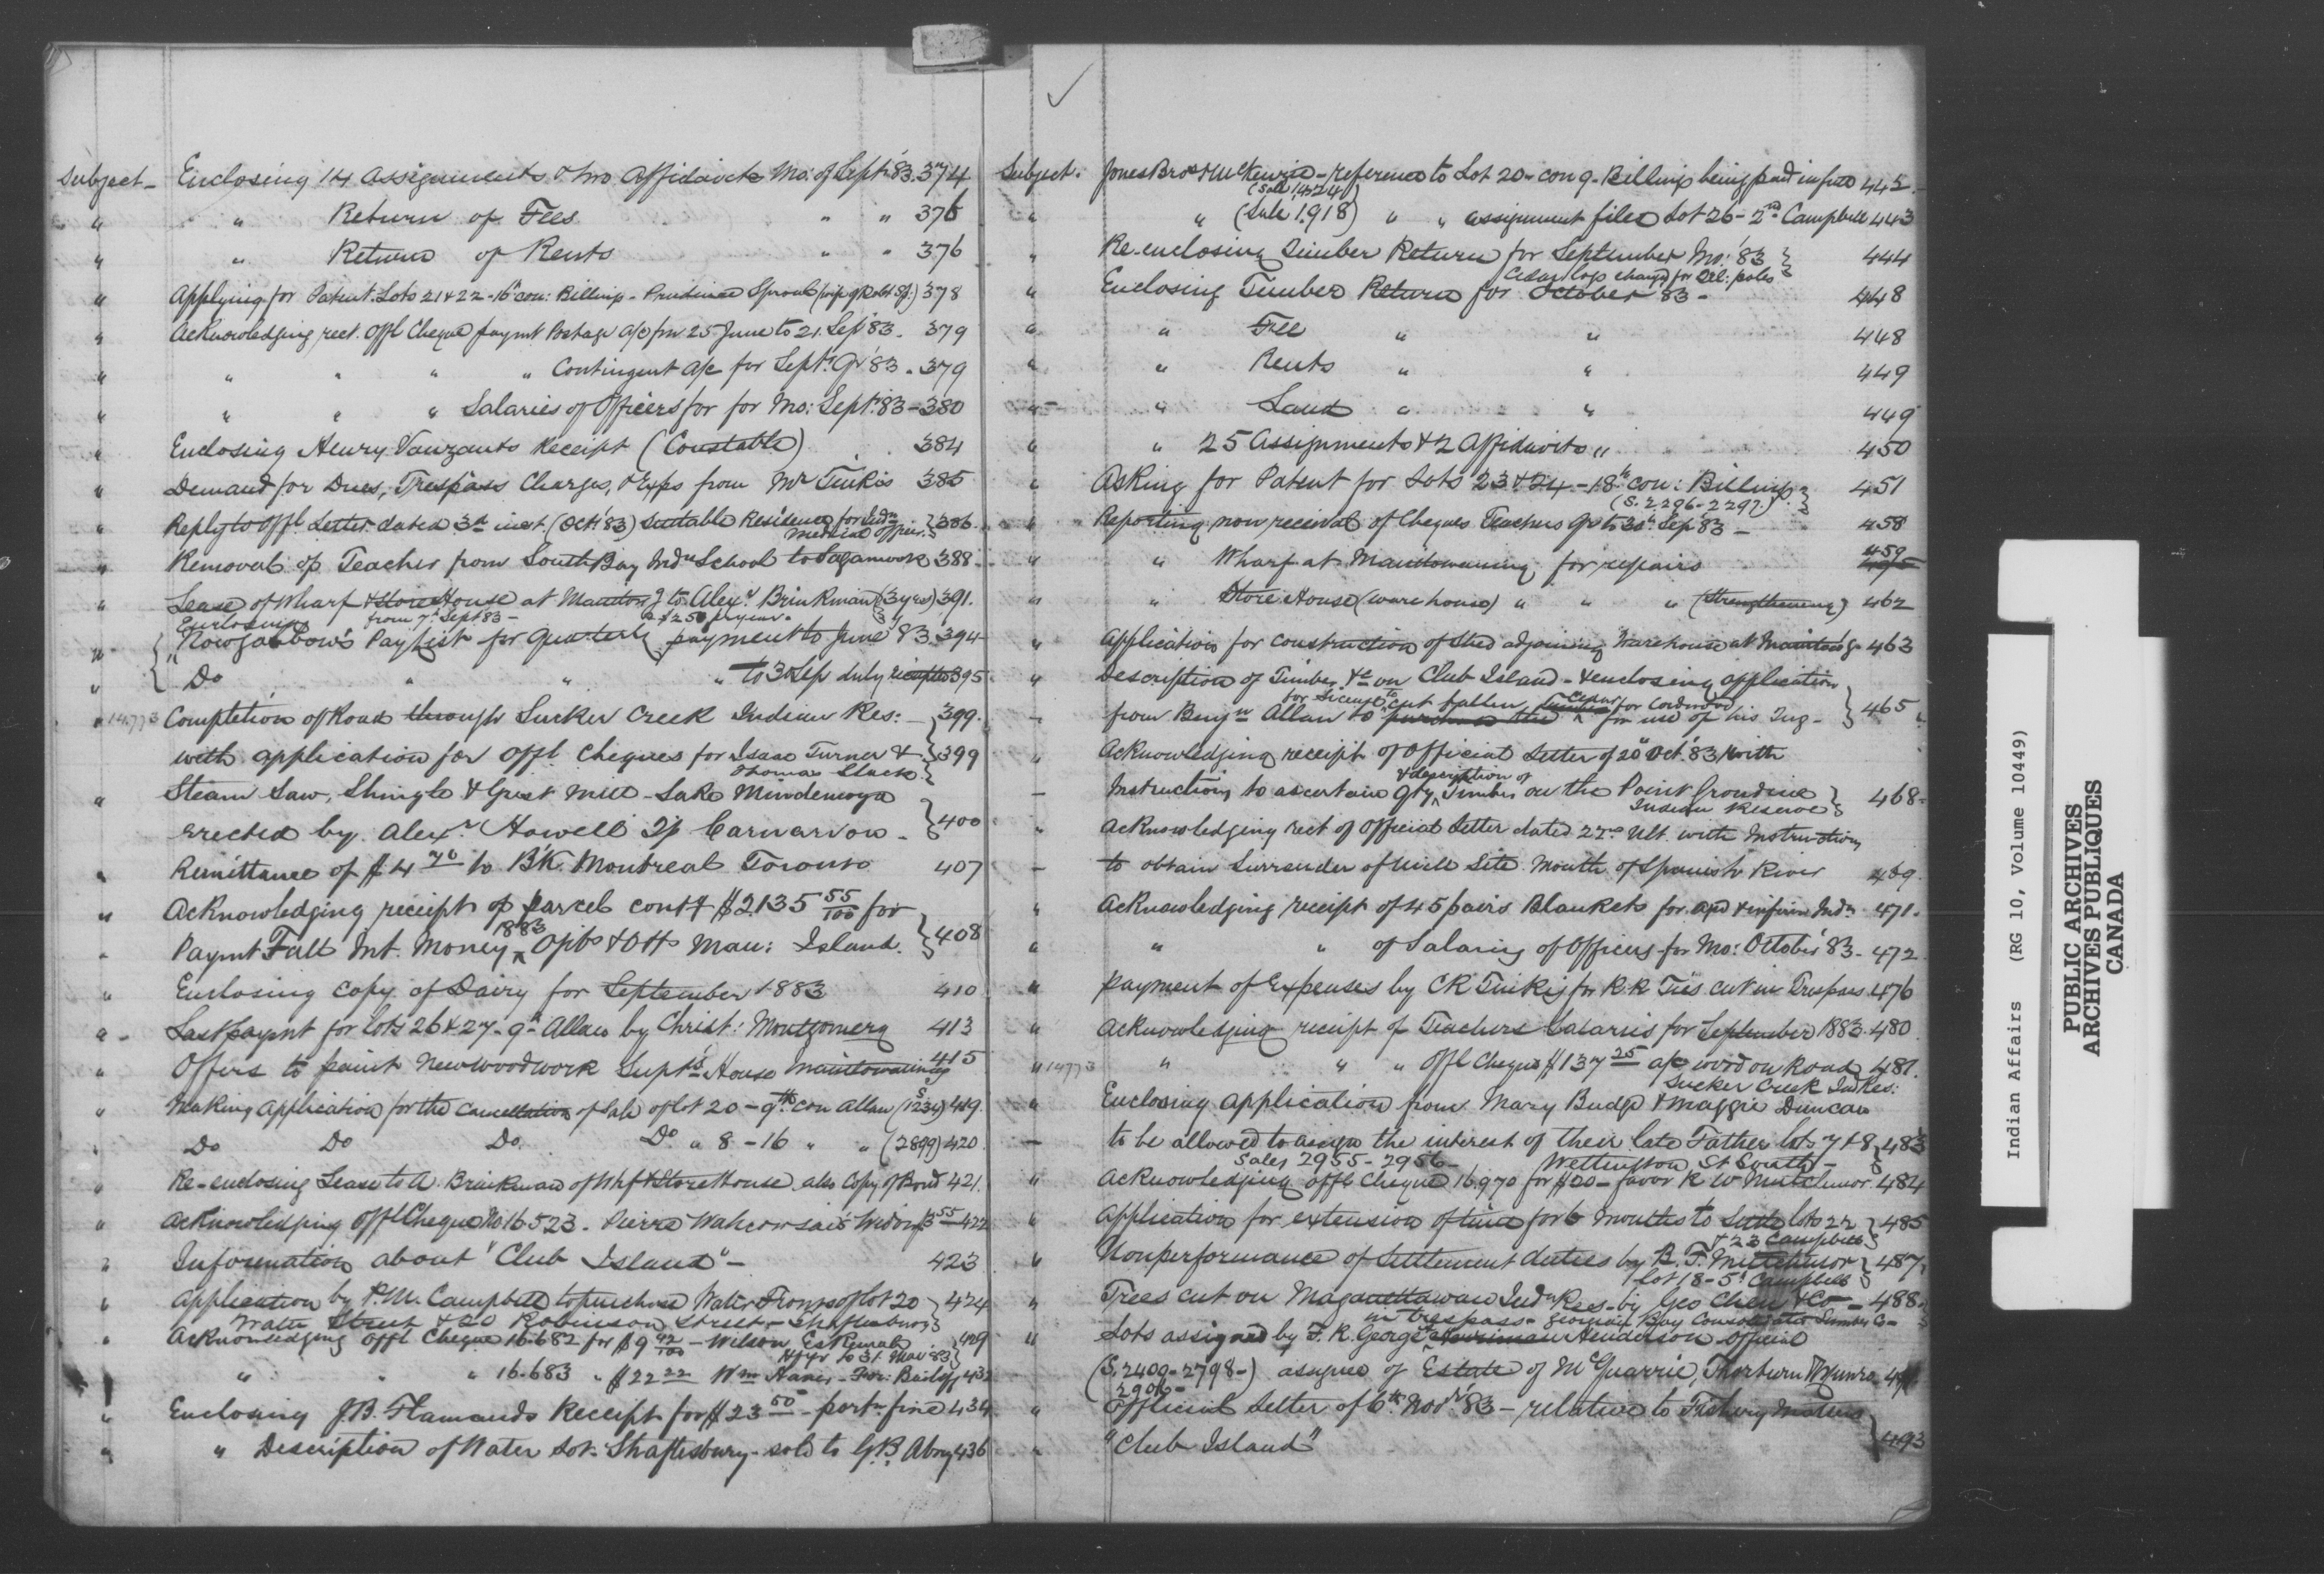 Subject - Enclosing 14 Assignments & two Affidavits Mo: of Sept '83. 374
" " Return of Fees " " 376
" " Return of Rents " " 376
" Applying for Patent. Lots 21 & 22 - 16 con: Billings - Prudence Sproul (wife of Robt Sp.) 378
" Acknowledging rect. Offl Cheque paymt Postage a/c fm 25 June to 21. Sep '83 - 379
" " " " " Contingent a/c for Sept. Qr '83 - 379
" " " " Salaries of Officers for for Mo: Sept. '83 - 380
" Enclosing Henry Vanzants Receipt (Constable) 384
" Demand for Dues, Trespass Charges, & Exps from Mr Tinkis 385
" Reply to Offl Letter dated 3d inst. (Oct '83) Suitable Residence for Indn Medical Officer } 386
" Removal of Teacher from South Bay Indn School to Sagamook 388
" Lease of Wharf & Store House at Maniton'g to Alexr Brinkman (3 yrs) 391.
from 7th Sept 83 - @ $250 p year.
" Enclosing
Nowgabbow's Paylist for quarterly payment to June '83. 394
" Do " " " to 30 Sep duly receipted 395
" 14,773 Completion of Road through Sucker Creek Indian Res: - } 399.
with application for Offl Cheques for Isaac Turner & } 399
Thomas Stuck }
" Steam Saw, Shingle & Grist Mill - Lake Mindemoya
erected by Alexr Howell Tp Carnarvon - } 400
" Remittance of $4 70 to B'k Montreal Toronto 407
" Acknowledging receipt of parcel cont'g $2,135 55/100 for
" Paymt Fall Int. Money 1883 Ojibs & Otts Man: Island. } 408
" Enclosing copy of Dairy for September 1883 410
" Last paymt for lots 26 & 27 - 9th Allan by Christ: Montgomery 413
" Offers to paint new woodwork Supt's House Manitowaning 415
" Making Application for the Cancellation of Sale of lot 20 - 9th con Allan (S 1234) 419.
" Do Do Do. Do " 8 - 16 " " (2899) 420
" Re-enclosing Lease to A. Brinkman of Whf & Store House also Copy of Bond 421.
" Acknowledging Offl Cheque No 16.523. Pierre Wahcowsai's Widow $3 55 422
" Information about "Club Island" - 423
" Application by P.M. Campbell to purchase Water Fronts of lot 20 } 424
Water Street & 20 Robinson Street - Shaftesbury }
" Acknowledging Offl Cheque 16.682 for $9 92/100 - Wilson Eskemah } 429
to 31. Mar '83 }
" " " 16.683 " $22 22 Wm Hawes - For: Bailiff 432
" Enclosing J.B. Flamands Receipt for $23 50 - portn fine 434
" " Description of Water Lot - Shaftesbury - sold to G.B. Abrey 436
Subject - Jones Bros & McKenzie - reference to Lot 20 - con 9 - Billings being paid in full 442
(Sale 1424)
" " (Sale 1.918) " " assignment filed Lot 26 - 2nd Campbell 443
" Re-enclosing Timber Return for September Mo: '83 } 444
Cedar logs charged for Tel: poles
" Enclosing Timber Return for October 83 - 448
" " Fee " " 448
" " Rents " " 449
" " Land " " 449
" " 25 Assignments & 2 Affidavits " 450
" Asking for Patent for Lots 23 & 24 - 18th con: Billings } 451
(S. 2296 - 2297.) }
" Reporting non receival of Cheques Teachers Qr to 30th Sep '83 - 458
" " Wharf at Manitowaning for repairs 459
" " Store House (ware house) " " " (Strengthening) 462
" Application for construction of Shed adjoining Warehouse at Manitow'g - 463
" Description of Timber &c on Club Island - & enclosing application
for License to cut fallen for Cordwood
- from Benjn Allan to for use of his Tug - } 465
" Acknowledging receipt of Official Letter of 20th Oct. '83 with
& description of
- Instructions to ascertain qty Timber on the Point Grondine } 468-
Indian Reserve }
" Acknowledging rect of Official Letter dated 22nd Ult. with Instructions
- to obtain Surrender of Mill Site Mouth of Spanish River 469.
" Acknowledging receipt of 45 pairs Blankets for agd & infirm Inds 471.
" " " of Salaries of Officers for Mo: October '83 - 472
" Payment of Expenses by CR Tinkis for R.R. Ties cut in Trespass 476
" Acknowledging receipt of Teachers Salaries for September 1883. 480
" 14773 " " " Offl Cheque $137 25 a/c word on Road 481.
Sucker Creek Ind Res:
" Enclosing application from Mary Budge & Maggie Duncan
- to be allowed to assign the interest of their late Father lots 7 & 8 } 483
Sales 2955 - 2956 - Wellington St South - }
" Acknowledging Offl Cheque 16.970 for $20 - favor R W Mutchmor 484
" Application for extension of time for 6 months to Settle lots 22 } 485
& 23 Campbell }
" Nonperformance of Settlement duties by B. F. Mutchmor } 487
lot 18 - 5th Campbell }
" Trees cut on Maganettawan Indn Res. by Geo Chew & Co - 488
in trespass - Georgian Bay Consolidated Lumber Co -
" Lots assigned by F. R. George Henderson Official
(S. 2400 - 2798 -) assignee of Estate of McQuarrie, Thorburn & Munro
2906 -
" Official Letter of 6th Novr '83 - relative to Fishery Matters
" "Club Island" } 493
Indian Affairs (RG 10, Volume 10449)
PUBLIC ARCHIVES
ARCHIVES PUBLIQUES
CANADA